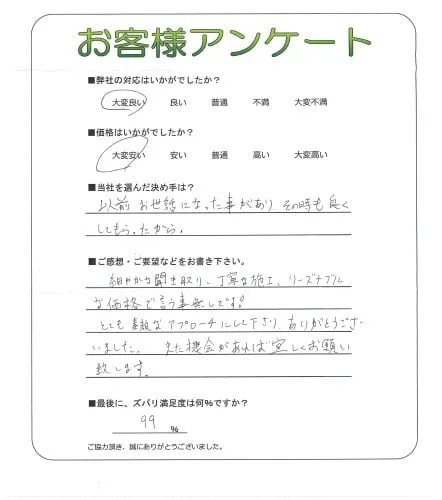 お客様アンケート
■弊社の対応はいかがでしたか？
大変良い 良い 普通 不満 大変不満
■価格はいかがでしたか？
大変安い 安い 普通 高い 大変高い
■当社を選んだ決め手は？
以前 お世話になった事があり その時も良く
してもらったから。
■ご感想・ご要望などをお書き下さい。
細やかな聞き取り、丁寧な施工、リーズナブル
な価格で言う事無しです。
とても素敵なアプローチにして下さり、ありがとうござ
いました。 また機会があれば宜しくお願い
致します。
■最後に、ズバリ満足度は何％ですか？
99 ％
ご協力頂き、誠にありがとうございました。